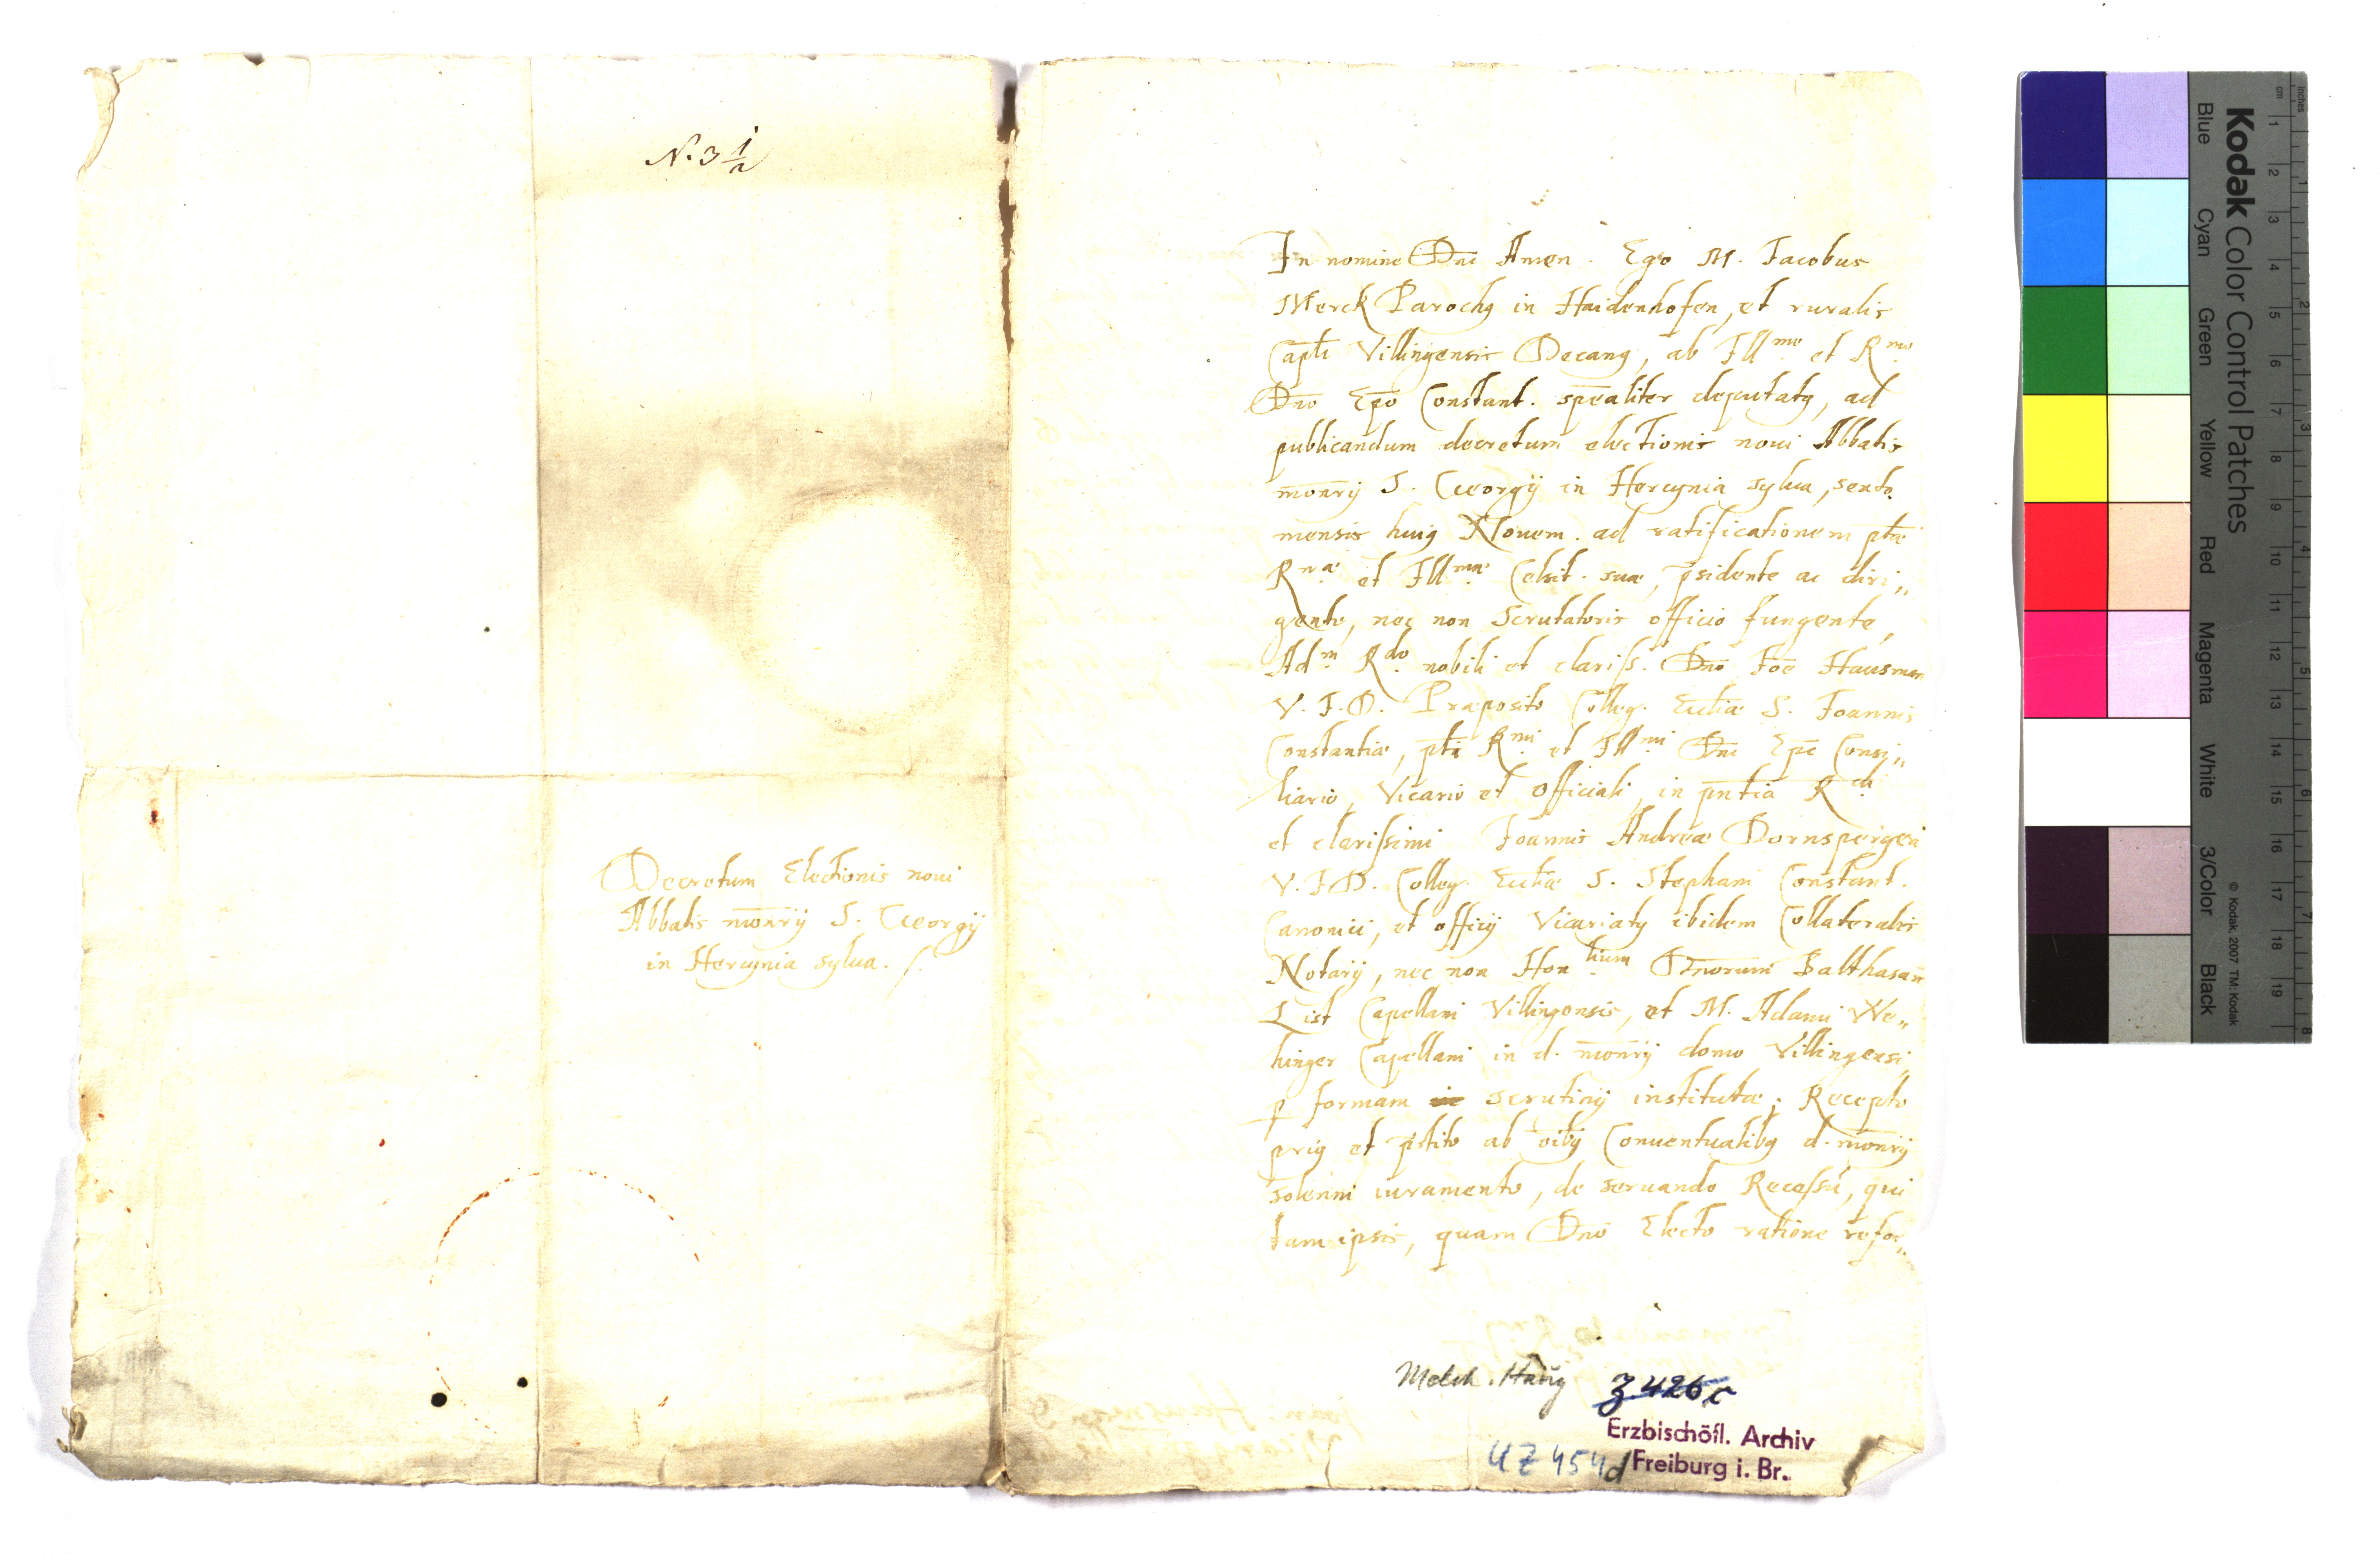 N. 3 1/2
Decretum Electionis noui
Abbatis monrÿ S. Georgÿ
in Hercynia sylua. /.
In nomine Dni Amen. Ego M. Jacobus
Merck Parochꝯ in Haidenhofen, et ruralis
Capli Villingensis Decanꝯ, ab Illmo et Rmo
Dno Epo Constant. spealiter deputatꝯ, ad
publicandum decretum electionis noui Abbatis
monrÿ S. Georgÿ in Hercynia sylua, sexto
mensis huiꝯ Nouem. ad ratificationem ptæ
Rmæ et Illmæ Celsit. suæ, psidente ac diri„
gente, nec non Scrutatoris officio fungente,
Adm Rdo nobili et clariss. Dno Joe Hausman
V. J. D. Præposito Colleg. Ecclæ S. Joannis
Constantiæ, pti Rmi et Illmi Dni Epi Consi„
liario, Vicario et Officiali, in pntia Rdi
et clarissimi Joannis Andreæ Dornspergeri
V. J. D. Colleg. Ecclæ S. Stephani Constant.
Canonici, et officÿ Vicariatꝯ ibidem Collateralis
Notarÿ, nec non Honlium Dnorum Balthasari
List Capellani Villingensis, et M. Adami We„
hinger Capellani in d. monrÿ domo Villingensi,
p formam in scrutinÿ institutæ; Recepto
priꝯ et pstito ab oibꝯ Conuentualibꝯ d. monrÿ
solenni iuramento, de seruando Recessu, qui
tam ipsis, quam Dno Electo ratione refor„
Melch. Haug
Z 426 c
Erzbischöfl. Archiv
Freiburg i. Br.
UZ 454d
Kodak Color Control Patches
Blue Cyan Green Yellow Red Magenta White 3/Color Black
© Kodak, 2007 TM: Kodak
cm 1 2 3 4 5 6 7 8 9 10 11 12 13 14 15 16 17 18 19
inches 1 2 3 4 5 6 7 8